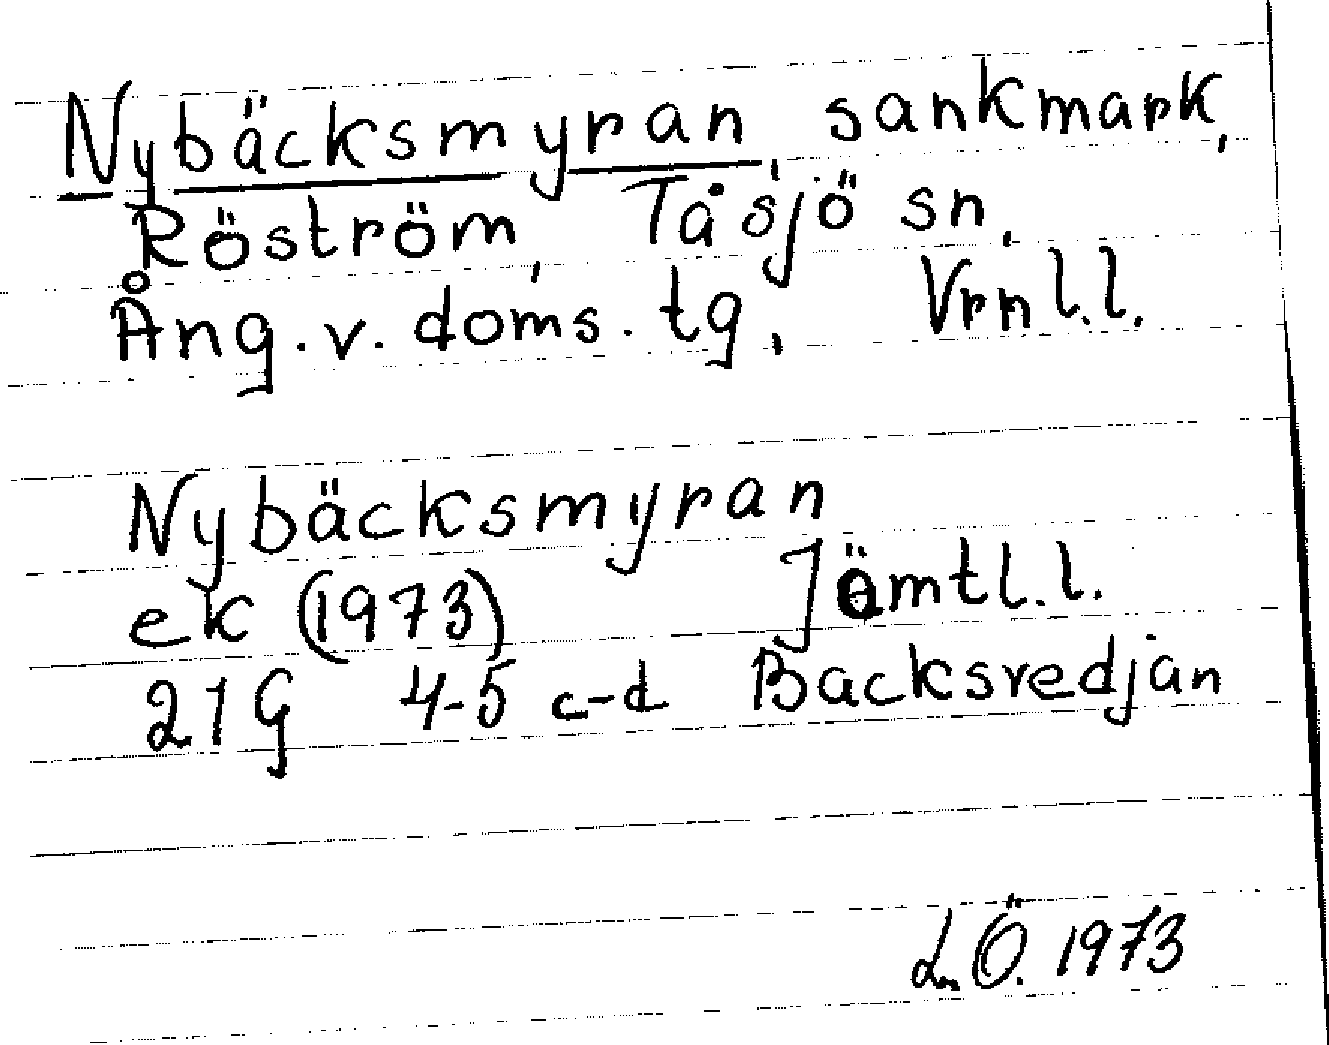 Nybäcksmyran, sankmark,
Röström, Tåsjö sn.
Ång.v. doms. tg, Vrnl.l.
Nybäcksmyran
ek (1973) Jämtl.l.
21G 4-5 c-d Backsvedjan
L.Ö. 1973